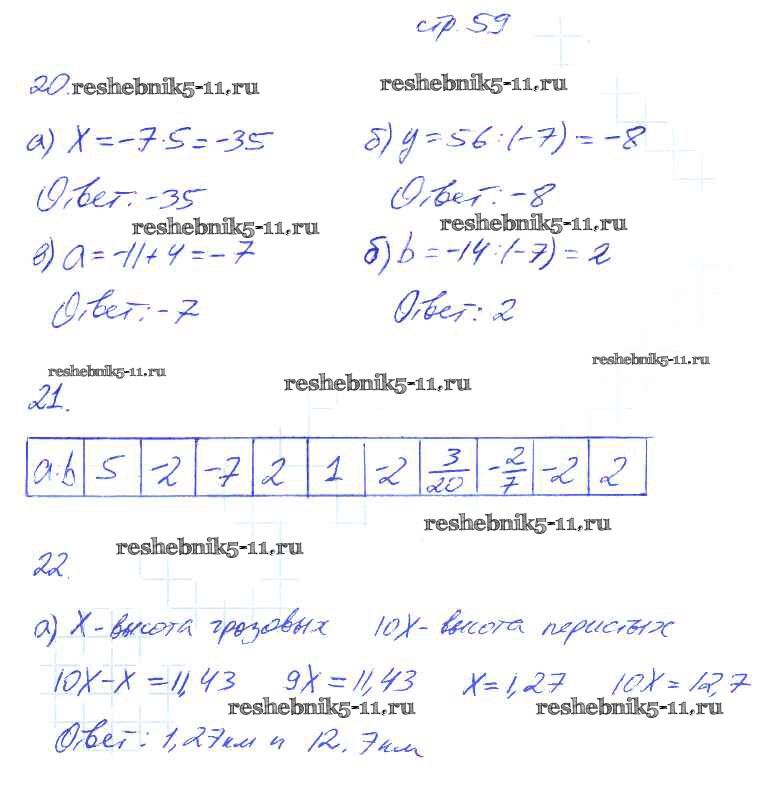 стр. 59
20. reshebnik5-11.ru reshebnik5-11.ru
а) x = -7·5 = -35 б) y = 56:(-7) = -8
Ответ: -35 Ответ: -8
reshebnik5-11.ru reshebnik5-11.ru
в) a = -11+4 = -7 б) b = -14:(-7) = 2
Ответ: -7 Ответ: 2
reshebnik5-11.ru reshebnik5-11.ru reshebnik5-11.ru
21.
a:b 5 -2 -7 2 1 -2 3/20 -2/7 -2 2
reshebnik5-11.ru
reshebnik5-11.ru
22.
а) X - высота грозовых 10X - высота перистых
10X-X = 11,43 9X = 11,43 X = 1,27 10X = 12,7
reshebnik5-11.ru reshebnik5-11.ru
Ответ: 1,27км и 12.7км